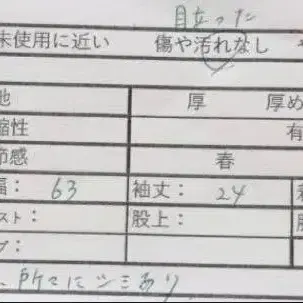 目立った
未使用に近い 傷や汚れなし
地 厚 厚め
縮性 有
節感 春
幅: 63 袖丈: 24
スト: 股上:
プ:
、所々にシミあり